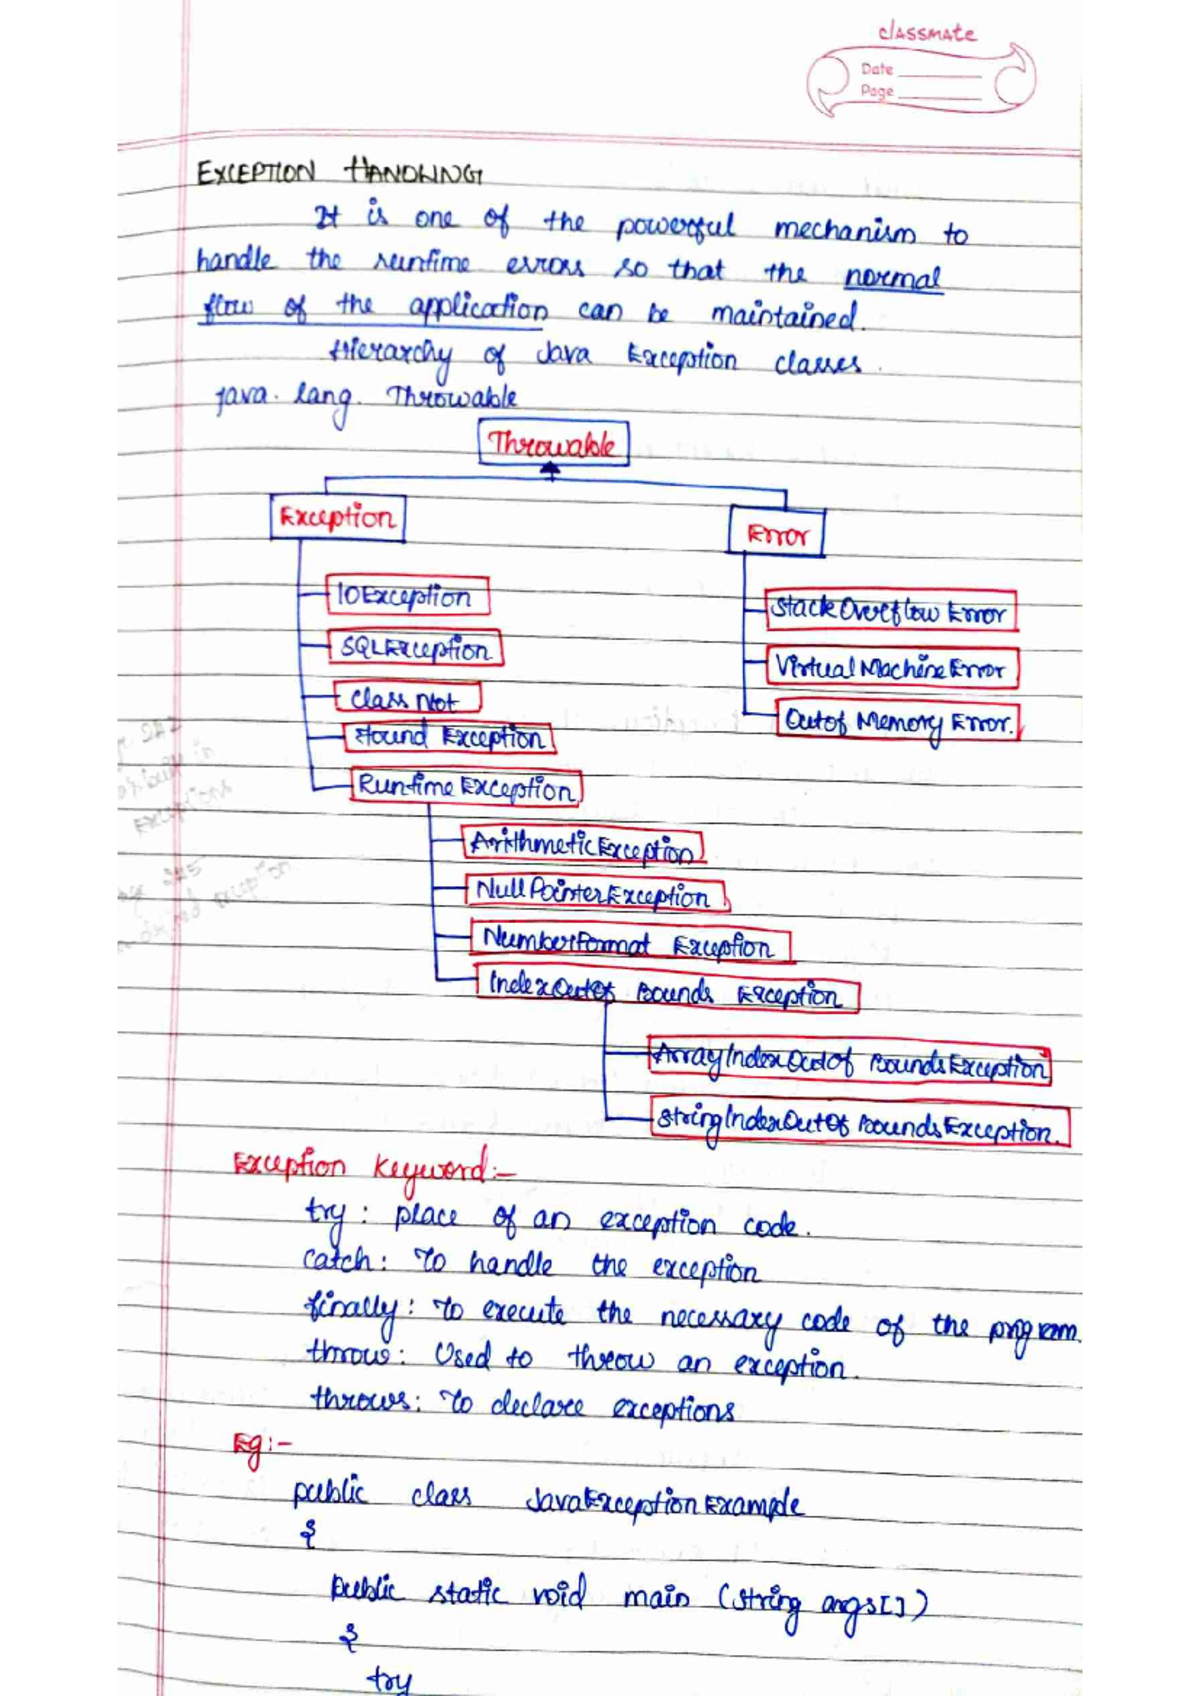 classmate
Date
Page
EXCEPTION HANDLING
It is one of the powerful mechanism to
handle the runtime errors so that the normal
flow of the application can be maintained.
Hierarchy of Java Exception classes.
java. lang. Throwable
Throwable
Exception
Error
IOException
StackOverflow Error
SQLException
VirtualMachineError
Class Not
OutOf Memory Error.
Found Exception
RuntimeException
ArithmeticException
NullPointerException
NumberFormat Exception
IndexOutOf Bounds Exception
ArrayIndexOutOf BoundsException
StringIndexOutOf BoundsException.
Exception Keyword:-
try : place of an exception code.
catch : To handle the exception
finally : To execute the necessary code of the program.
throw : Used to throw an exception.
throws : To declare exceptions
Eg:-
public class JavaExceptionExample
{
public static void main (String args[])
{
try